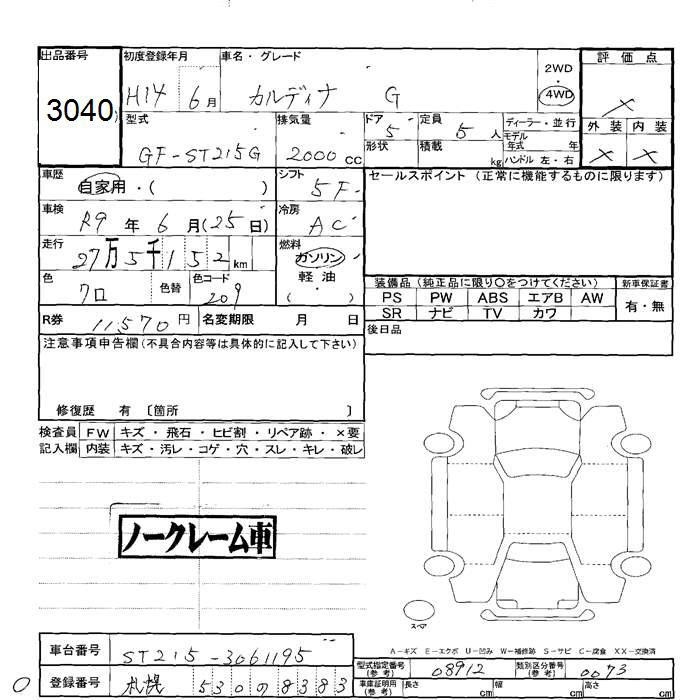 出品番号
3040
初度登録年月
H14 6月
車名・グレード
カルディナ G
2WD
・
4WD
評価点
×
外装 内装
× ×
型式
GF-ST215G
排気量
2000cc
ドア
5
定員
5人
ディーラー・並行
モデル
年式 年
形状
積載
kg
ハンドル 左・右
車歴
自家用・( )
シフト
5F
セールスポイント (正常に機能するものに限ります)
車検
R9年6月(25日)
冷房
AC
走行
27万5千152km
燃料
ガソリン・
軽油・
( )
色
クロ
色替
色コード
209
装備品 (純正品に限り〇をつけてください)
新車保証書
PS PW ABS エアB AW
SR ナビ TV カワ
有・無
R券 11,570円
名変期限 月 日
後日品
注意事項申告欄(不具合内容等は具体的に記入して下さい)
修復歴 有 〔箇所 〕
検査員 FW キズ・飛石・ヒビ割・リペア跡・×要
記入欄 内装 キズ・汚レ・コゲ・穴・スレ・キレ・破レ
ノークレーム車
スペア
A-キズ E-エクボ U-凹み W-補修跡 S-サビ C-腐食 XX-交換済
車台番号 ST215-3061195
登録番号 札幌 530の8383
型式指定番号
(参考)
08912
類別区分番号
(参考)
0073
車庫証明用
(参考)
長さ cm 幅 cm 高さ cm